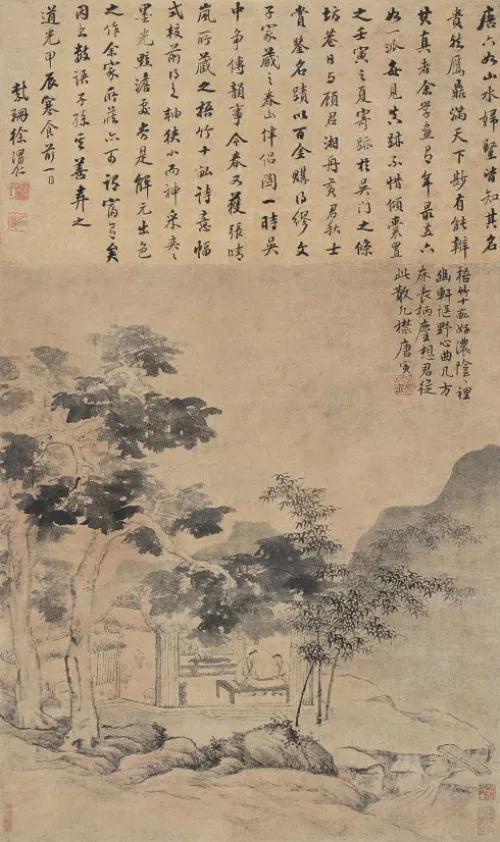 唐六如山水婦豎皆知其名
貴然贋鼎滿天下尠有能辨
其真者余學畫有年最喜六
如一派每見真跡不惜傾囊置
之壬寅之夏寄跡於吳門之條
坊巷日與顧君湘舟黃君秋士
賞鑒名蹟以百金購得繆文
子家藏之春山伴侶圖一時吳
中爭傳韻事今春又獲張晴
嵐所藏之梧竹十畝詩意幅
式校前得之軸狹小而神采奕々
墨光黯澹要皆是解元出色
之作余家所藏亦可謂富有矣
因書數語子孫其善弆之
道光甲辰寒食前一日
紫珊徐渭仁
梧竹十畝好濃陰々裡
幽軒愜野心曲几方
床長柄麈想君從
此散凡襟唐寅